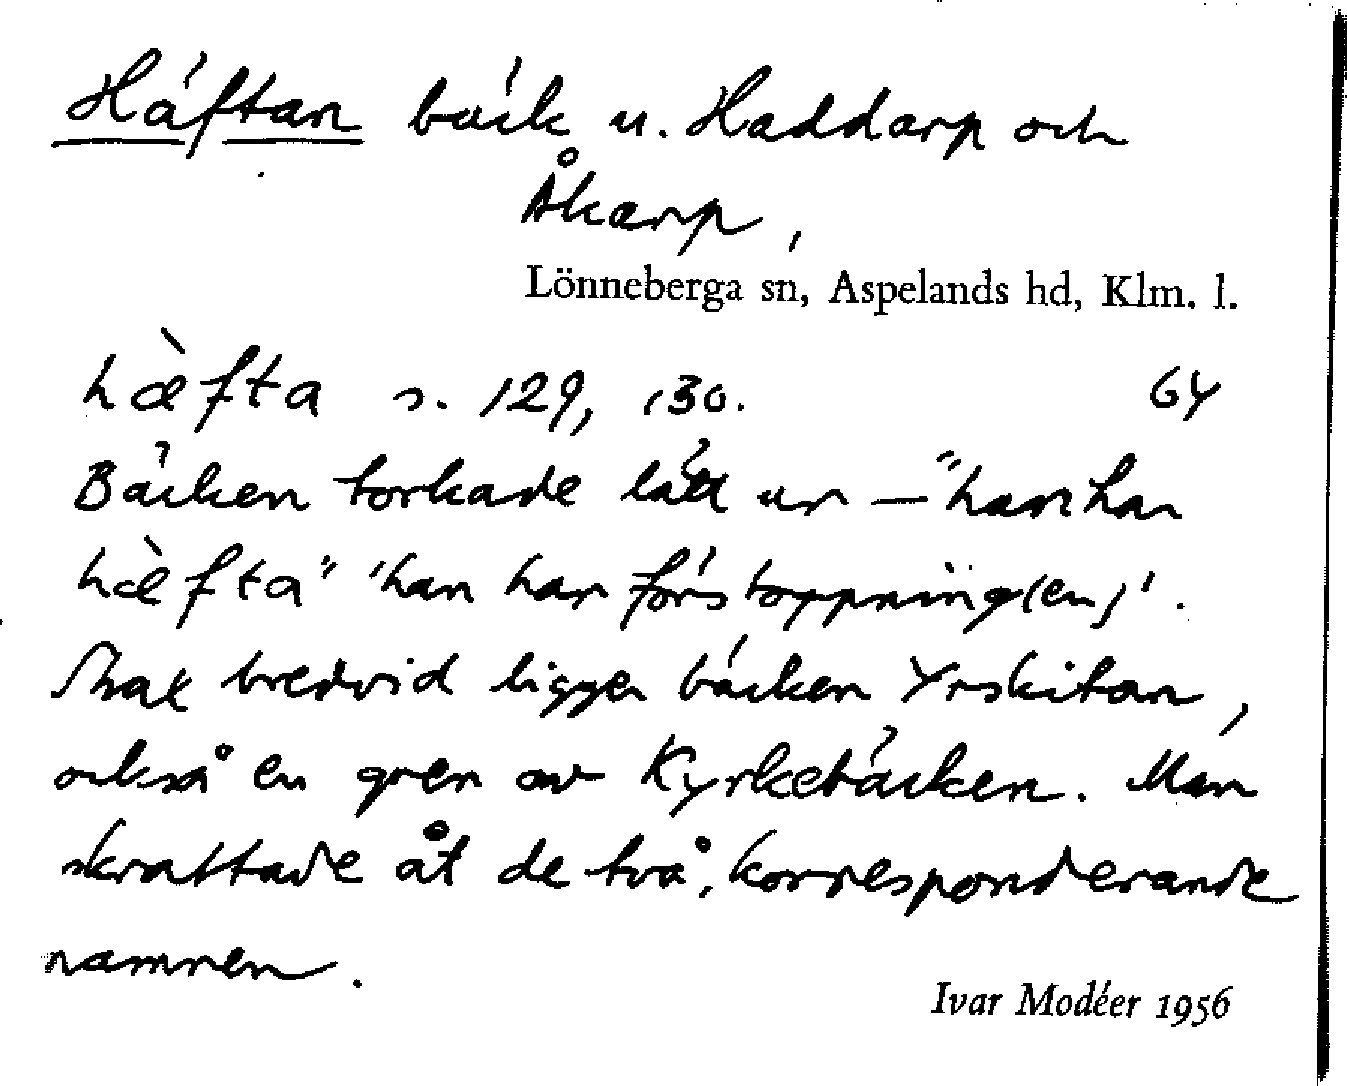 Häftan bäck u. Haddarp och
Åkarp,
Lönneberga sn, Aspelands hd, Klm. l.
hæ̀fta s. 129, 130. 64
Bäcken torkade lätt ur — "han har
hæ̀fta" 'han har förstoppning(en)'.
Strax bredvid ligger bäcken Yrskitan,
också en gren av Kyrkebäcken. Man
skrattade åt de två, korresponderande
namnen.
Ivar Modéer 1956